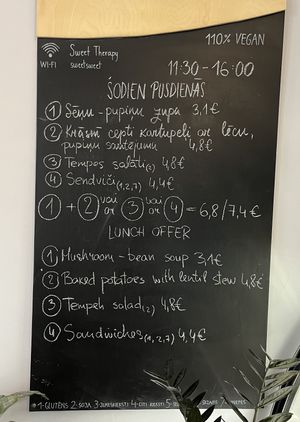 WI-FI
Sweet Therapy
sweetsweet
110% VEGAN
11:30-16:00
ŠODIEN PUSDIENĀS
1 Sēņu - pupiņu zupa 3,1€
2 Krāsnī cepti kartupeļi ar lēcu,
pupiņu sautējumu 4,8€
3 Tempes salāti(2) 4,8€
4 Sendviči(1,2,7) 4,4€
1 + 2 vai 3 vai 4 = 6,8/7,4€
LUNCH OFFER
1 Mushroom - bean soup 3,1€
2 Baked potatoes with lentil stew 4,8€
3 Tempeh salad(2) 4,8€
4 Sandwiches(1,2,7) 4,4€
*1-GLUTĒNS 2-SOJA